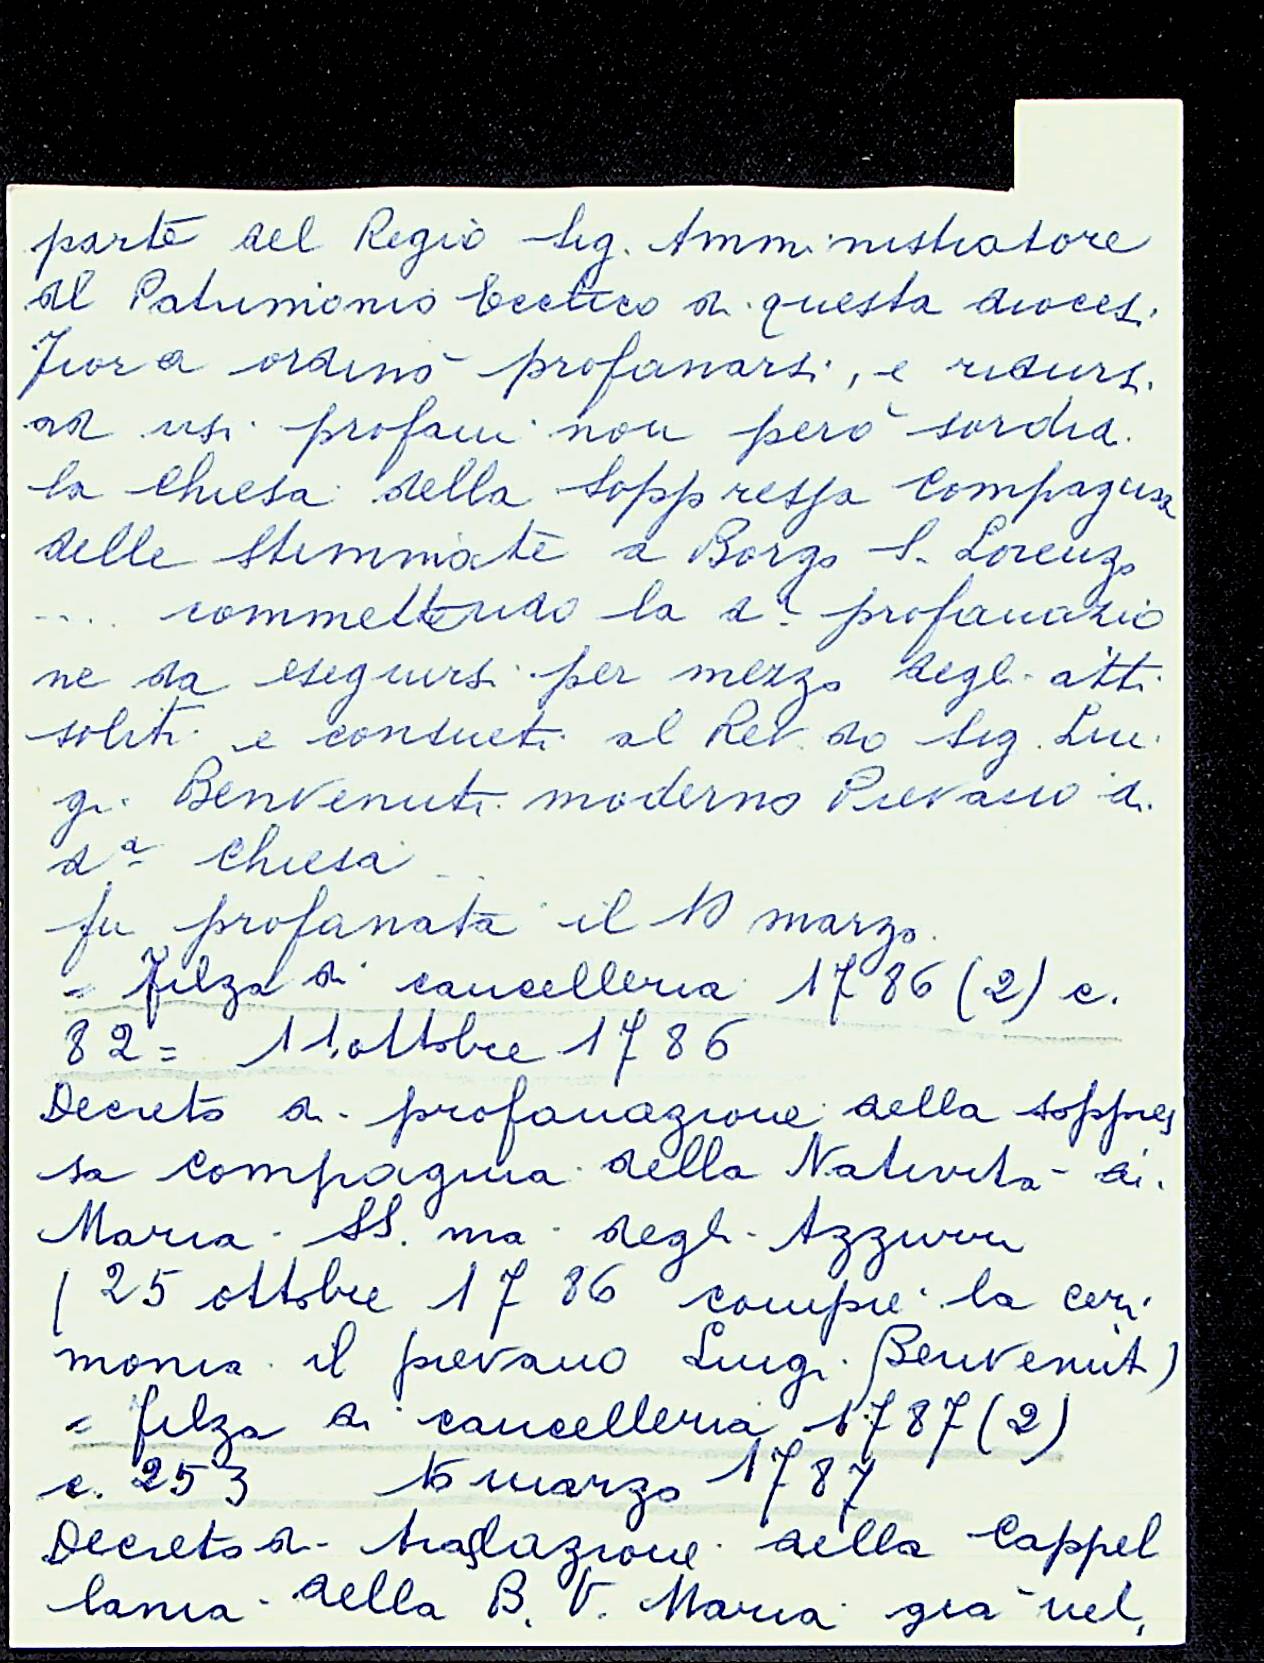 parte del Regio Sig. Amministratore
del Patrimonio Ecctico di questa diocesi
Fiora ordinò profanarsi, e ridursi
ad usi profani non però sordidi
la Chiesa della soppressa Compagnia
delle Stimmate a Borgo S. Lorenzo
.... commettendo la da profanazio
ne da eseguirsi per mezzo degli atti
soliti e consueti al Rev.do Sig. Lui
gi Benvenuti moderno Pievano di
da Chiesa ...
fu profanata il 10 marzo.
= Filza di cancelleria 1786 (2) c.
82 = 11 ottobre 1786
Decreto di profanazione della soppres
sa Compagnia della Natività di
Maria SS.ma degli Azzurri
(25 ottobre 1786 compie la ceri
monia il pievano Luigi Benvenuti)
= filza di cancelleria 1787 (2)
c. 253 marzo 1787
Decreto di traslazione della Cappel
lania della B. V. Maria già nel,